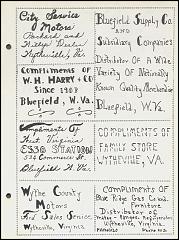 City Service
Motors
Packard and
Willys Dealer
Wytheville, Va.
Compliments of
W. H. Harry & Co
Since 1903
Bluefield, W. Va.
Compliments Of
West Virginia
524 Commerce St.
Bluefield W. Va.
Wythe County
Motors
Ford Sales Service
Wytheville, Virginia
Bluefield Supply Co.
and
Subsidiary Companies
Distributor Of A Wide
Variety of Nationally
Known Quality Merchandise
Bluefield, W. Va.
COMPLIMENTS
OF
FAMILY STORE
WYTHEVILLE,
VA.
COMPLIMENTS OF
Blue Ridge Gas Co Inc.
Distributors Of
Wytheville, Virginia